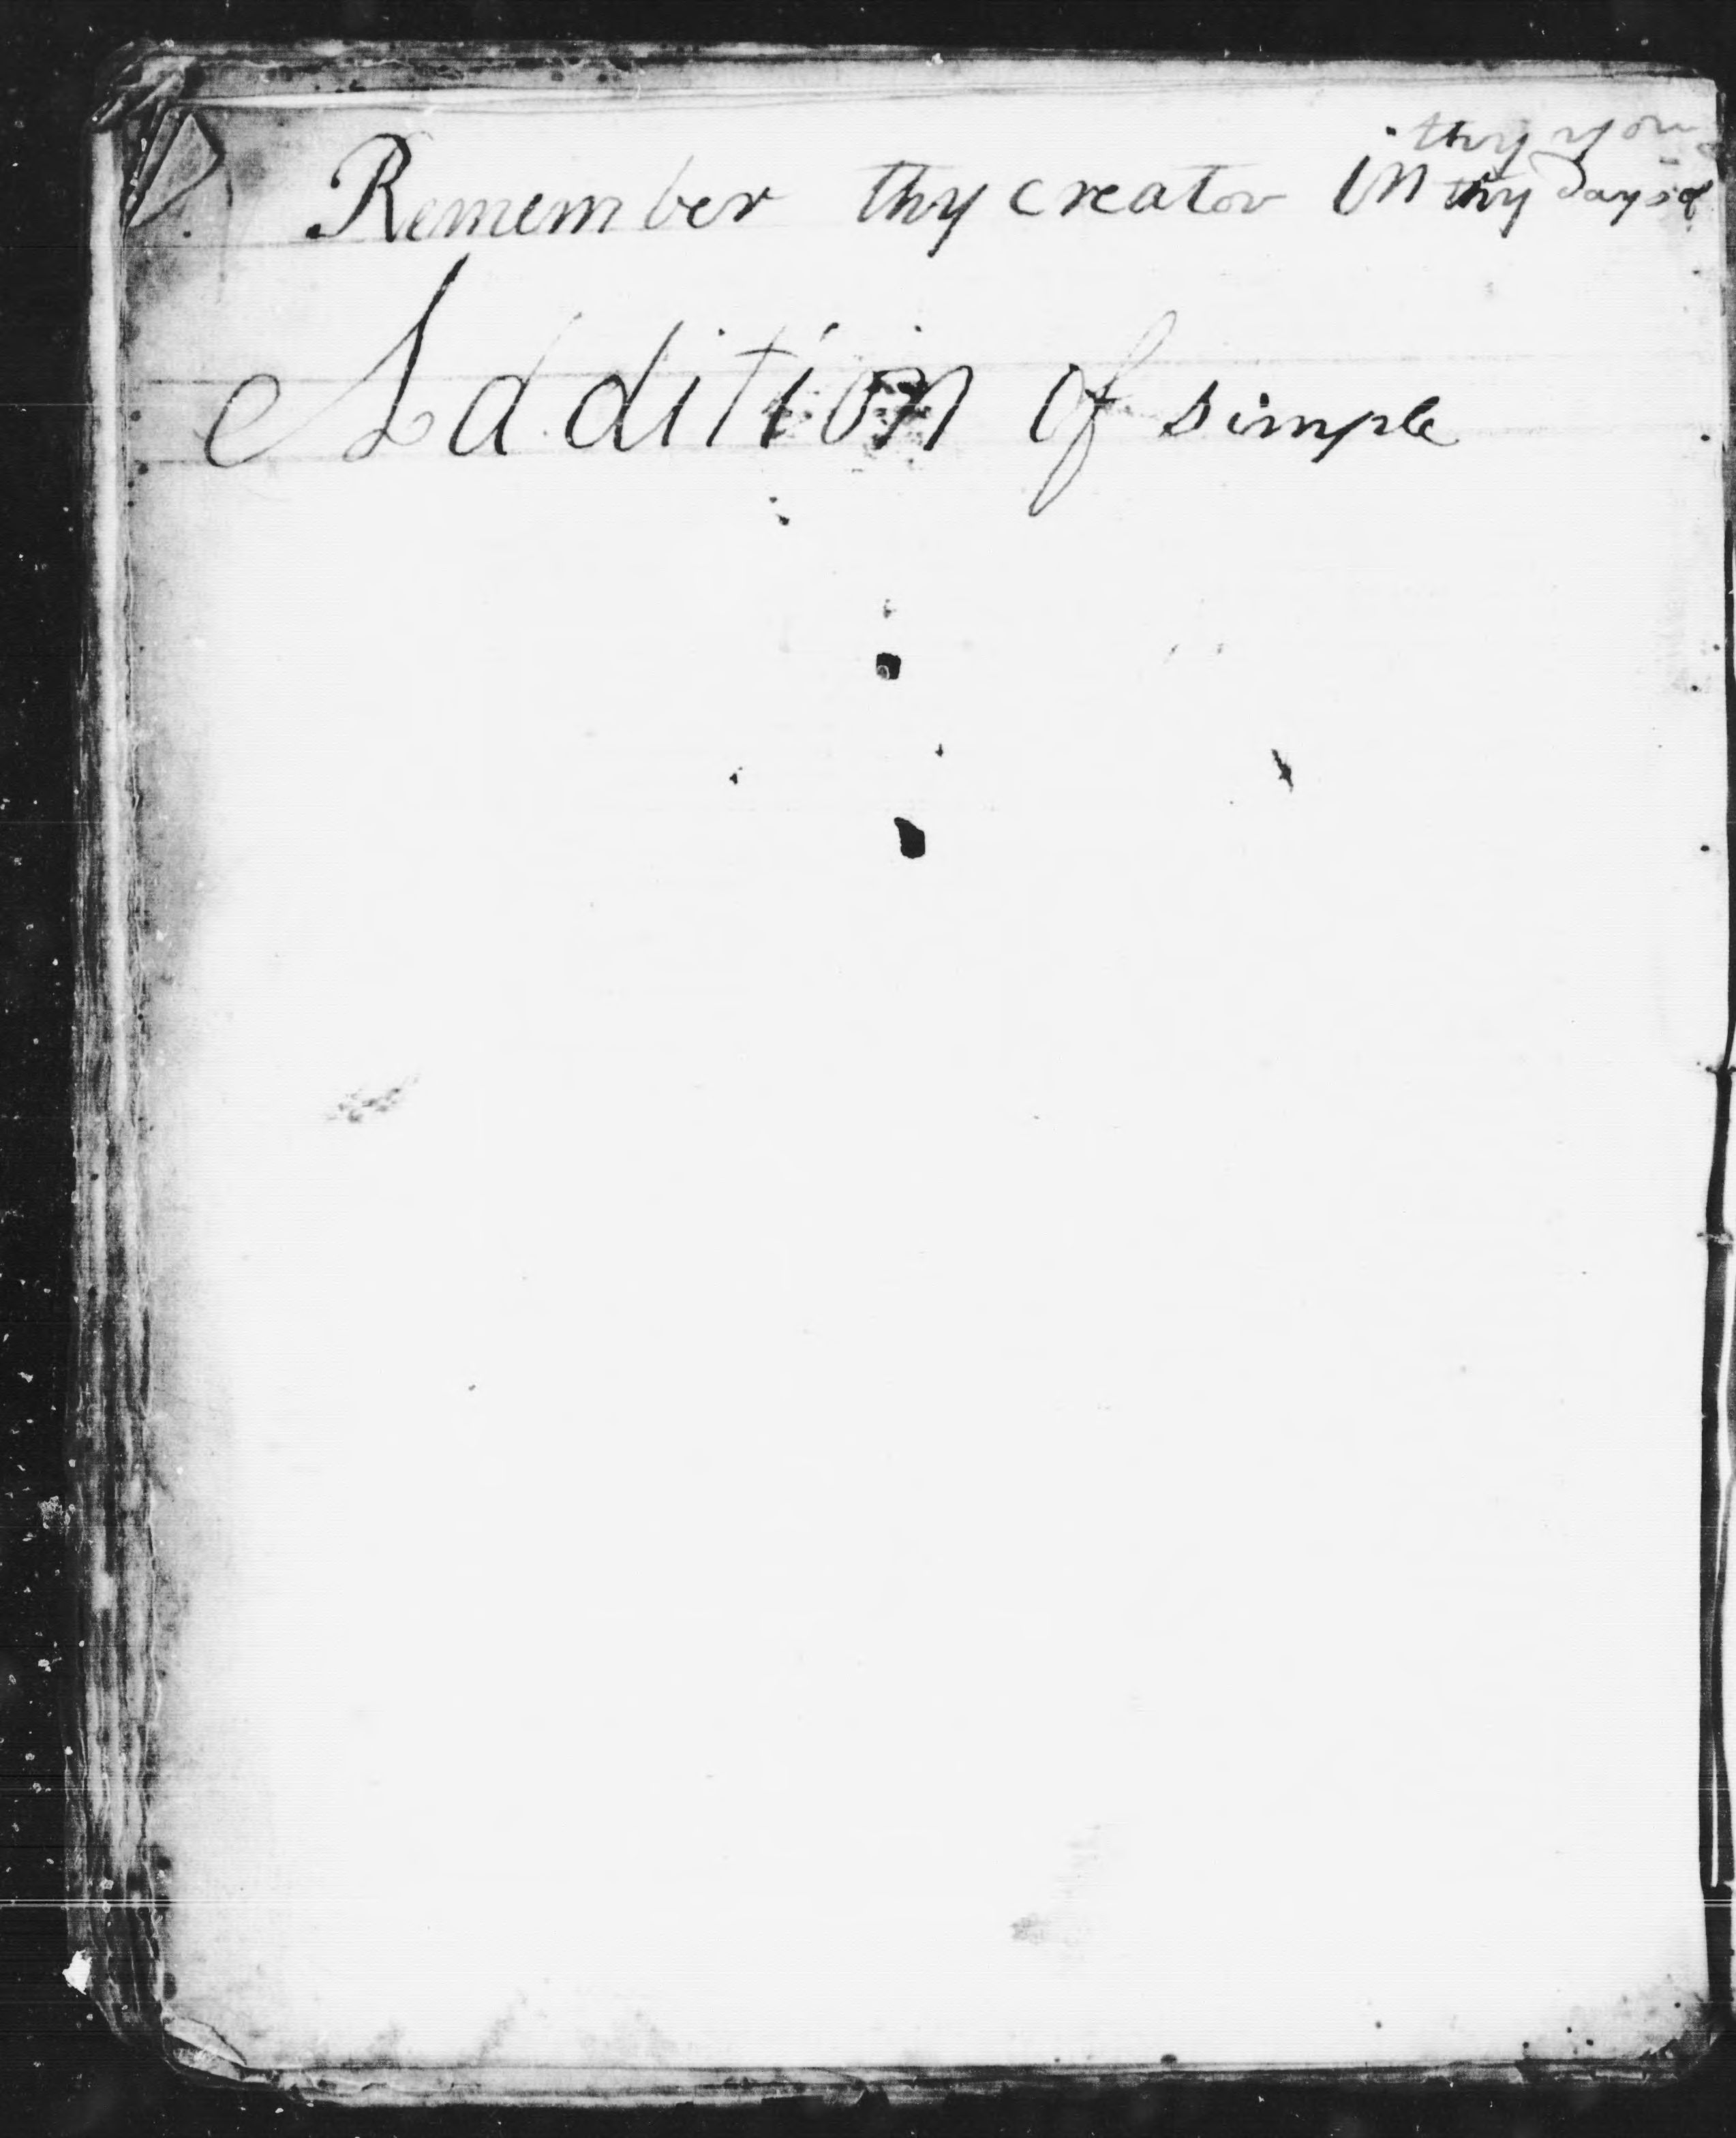 Remember thy creator in thy days of
thy you
Addition of simple